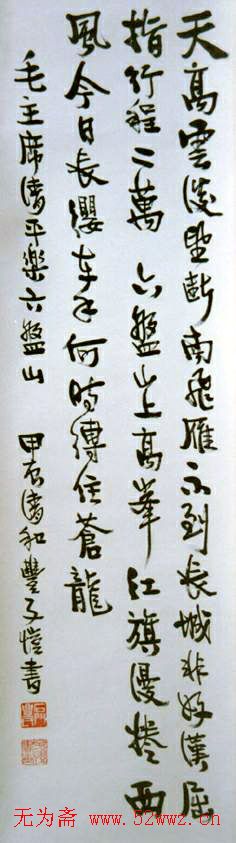 天高雲淡望斷南飛雁不到長城非好漢屈
指行程二萬 六盤山上高峯紅旗漫捲西
風今日長纓在手何時縛住蒼龍
毛主席清平樂六盤山 甲辰清和豐子愷書
无为斋 www.52wwz.cn